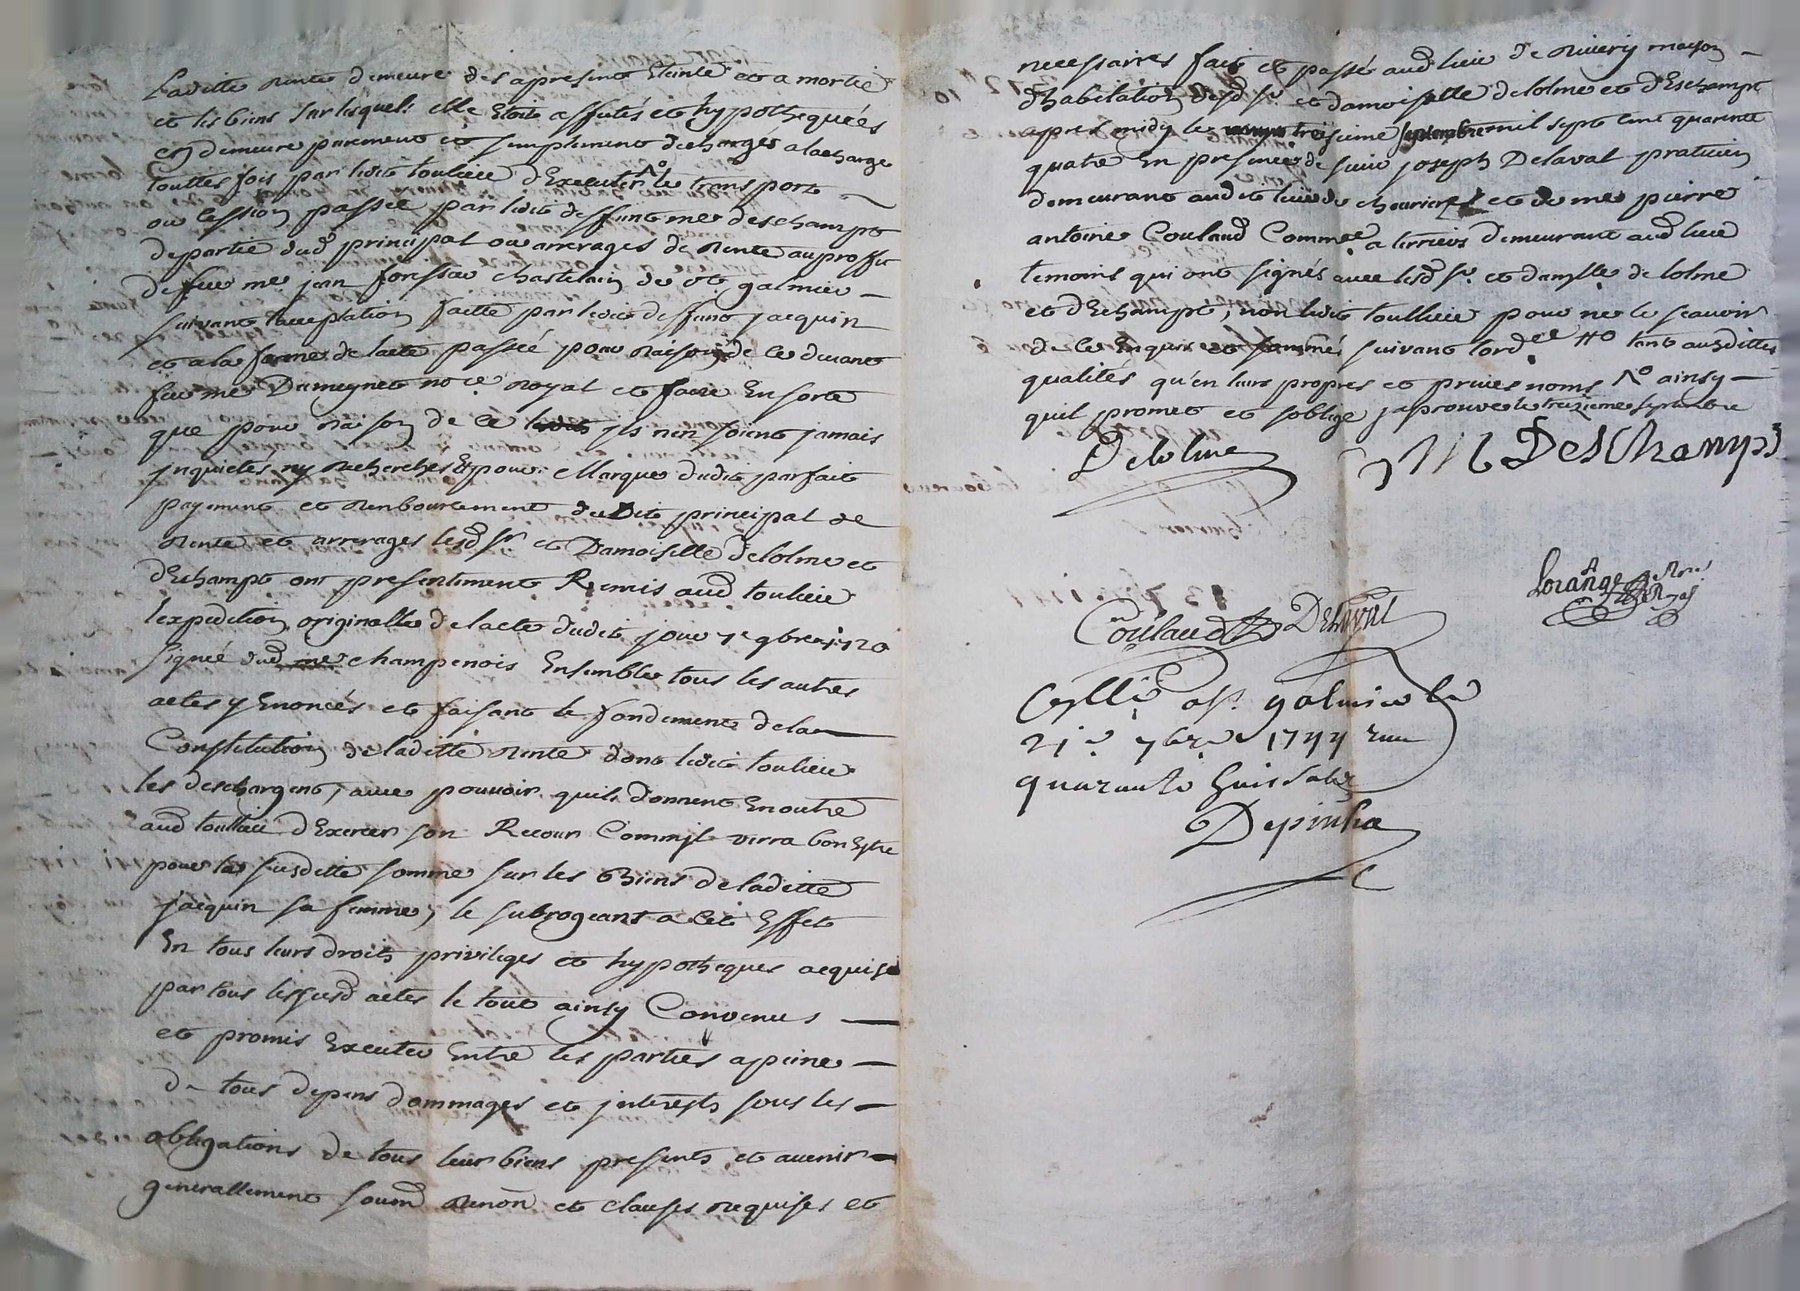 Laditte Rente demeure des apresent Eteinte et a mortie
et les biens sur lesquels elle Etoit affutés et hypothequéés
en demeure purement et simplement dechargés a la charge
touttes fois par ledit toulieu d'Executer le transport
ou cession passée par ledit deffunt me deschampt
de partie dud principal ou arrerages de Rente au proffit
de feu me jean forissier chastelain de st galmier
suivant l'acceptation faitte par ledit deffunt jacquin
et a la forme de lacte passéé pour Raison de ce devant
feu me Dumeynet no.re Royal et faire En sorte
que pour Raison de ce jls n'en soient jamais
jnquietés ny Recherchés Et pour Marque dudit parfait
payement et Renboursement dudit principal de
Rente et arrerages lesd sr et Damoiselle Delolme et
d'Echampt ont presentement Remis aud toulieu
lexpedition originalle de lacte dudit jour 7e 9bre 1720
signée dud me champenois Ensemble tous les autres
actes y Enoncés et faisant le fondement de la
Constitution de laditte Rente dont ledit toulieu
les deschargent, avec pouvoir quils donnent En outre
aud toullieu d'Exercer son Recour Comm'jl verra bon Estre
pour la susditte somme sur les Biens de laditte
jacquin sa femme, le subrogeant a cet Effet
En tous leurs droits privileges et hypotheques acquise
par tous lesjusd actes le tout ainsy Convenus
et promis Executer Entre les parties a peine
de tous depens dommages et jnterests sous les
obligations de tous leur biens presents et avenir
generallement soumon Renon et clauses Requises et
necessaires fait et passé aud lieu de Riverij maison
d'habitation desd sr et damoiselle delolme et d'Eschampt
apres midy le treizieme septembre mil sept cent quarente
quatre En presence de sieur joseph Delaval praticien
demeurant audit lieu de chevrieres et de me pierre
antoine Coulaud Commre a terriers demeurant aud lieu
temoins qui ont signés avec lesd sr et damlle de lolme
et d'Echampt, non ledit toullieu pour ne le scavoir
de ce Enquis et sommés suivant lordce tant ausdittes
qualités qu'en leurs propres et privés noms ainsy
quil promet et soblige japrouve le treizieme septembre
Delolme M DesChamps
Coulaud Delaval Lorange
Conllé a st. galmier le
21e 7bre 1744 Recu
quarante huit sols
Depinha